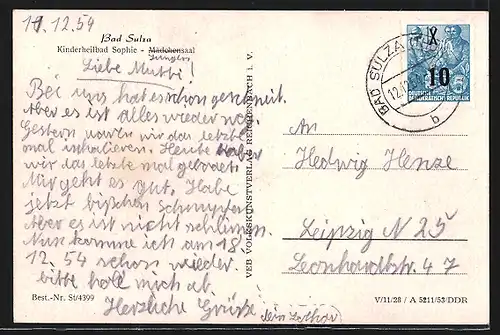 11.12.54
Bad Sulza
Kinderheilbad Sophie - Mädchensaal
Jungens
Liebe Mutti!
Bei uns hat es schon geschneit.
Aber es ist alles wieder
Gestern waren wir das letzte
mal inhalieren. Heute haben
wir das letzte mal gebadet.
Mir geht es gut. Habe
jetzt bischen Schnupfen
Aber es ist nicht schlimm.
Nun komme ich am 18.
12.54 schon wieder.
bitte hole mich ab.
Herzliche Grüße
Dein Lothar
Best.-Nr. St/4399
VEB VOLKSKUNSTVERLAG REICHENBACH i. V.
BAD SULZA
12.12
b
X
10
DEUTSCHE
DEMOKRATISCHE REPUBLIK
An
Hedwig Henze
Leipzig N 25
Leonhardtstr. 47
V/11/28 / A 5211/53/DDR